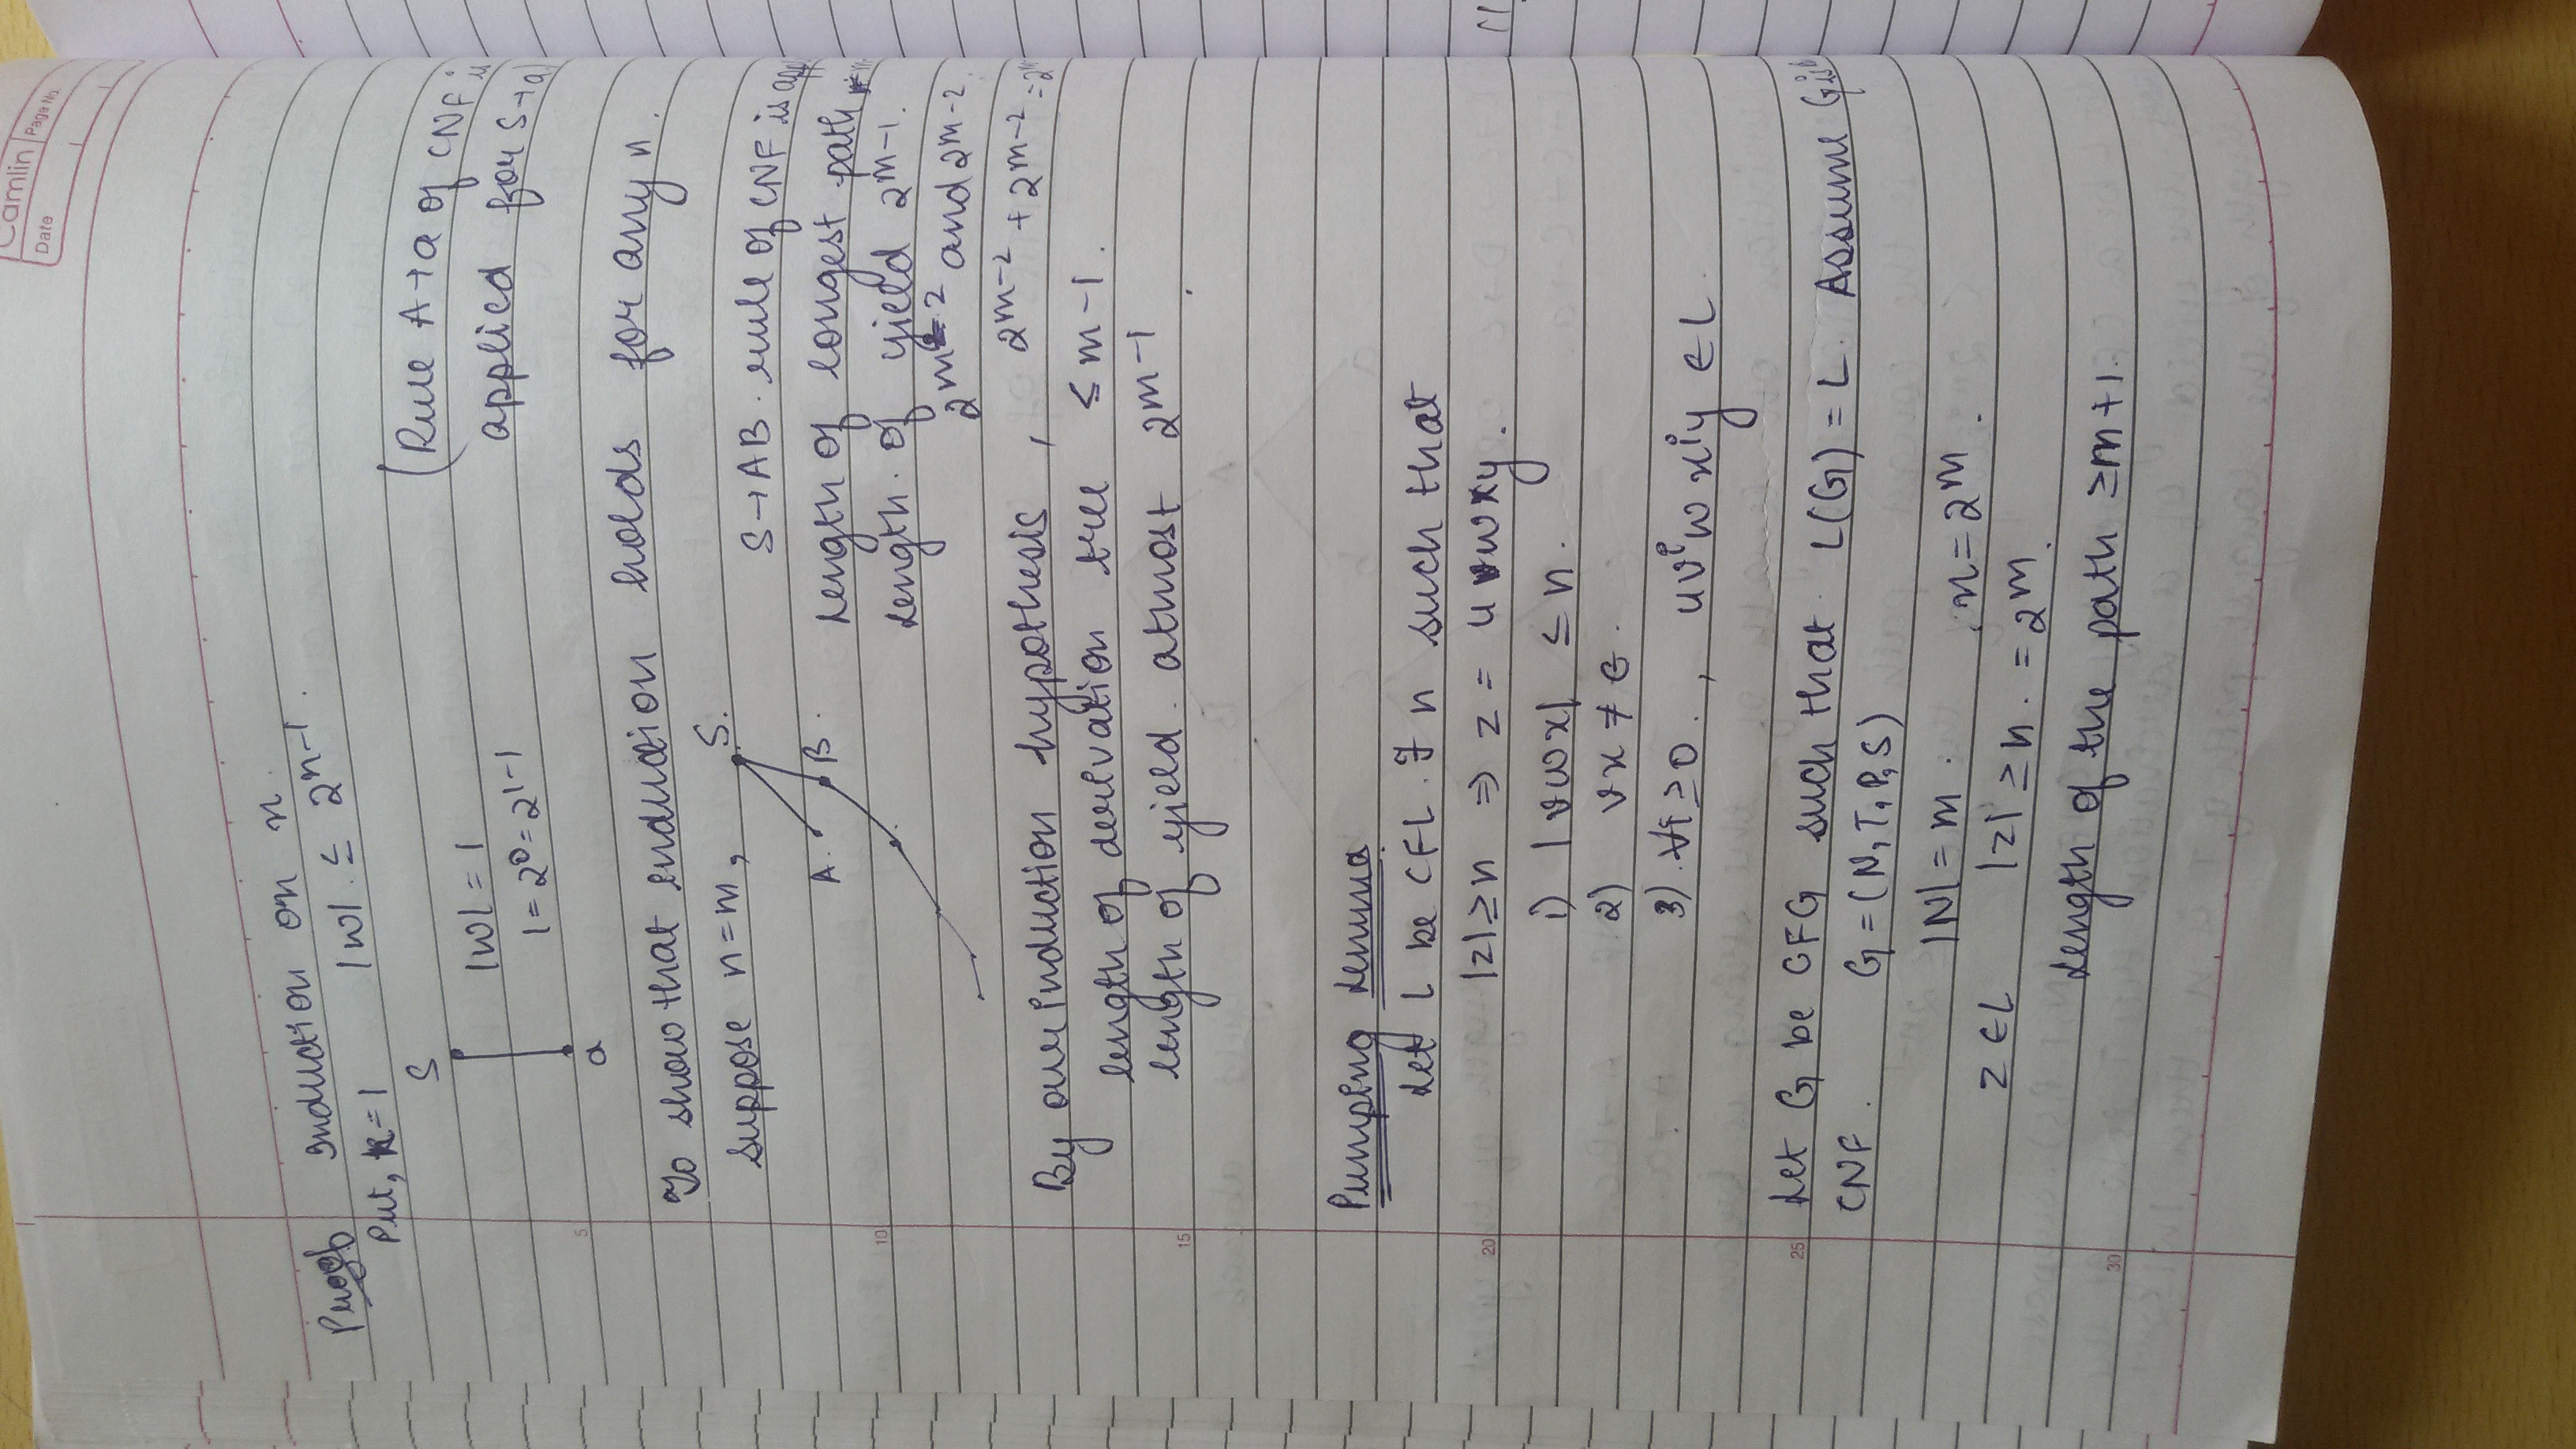 Camlin Page No.
Date
Proof Induction on n.
Put, n=1 |w| ≤ 2^{n-1}.
S
|w| = 1
1 = 2^0 = 2^{1-1}
a
(Rule A→a of CNF is
applied for S→a)
5
To show that induction holds for any n.
Suppose n=m,
S.
A. B.
S→AB. rule of CNF is app
Length of longest path
10
Length of yield 2^{m-1}.
2^{m-2} and 2^{m-2}.
By our induction hypothesis, 2^{m-2} + 2^{m-2} =
length of derivation tree ≤ m-1.
15
length of yield atmost 2^{m-1}
Pumping Lemma
Let L be CFL. ∃ n such that
20
|z| ≥ n ⇒ z = uvwxy.
1) |vwx| ≤ n.
2) vx ≠ ϵ.
3) ∀i ≥ 0, uv^iwx^iy ∈ L.
25
Let G be CFG such that L(G) = L. Assume G is
CNF. G = (N, T, P, S)
|N| = m. n = 2^m.
z ∈ L |z| ≥ n. = 2^m.
Length of the path ≥ m+1.
30